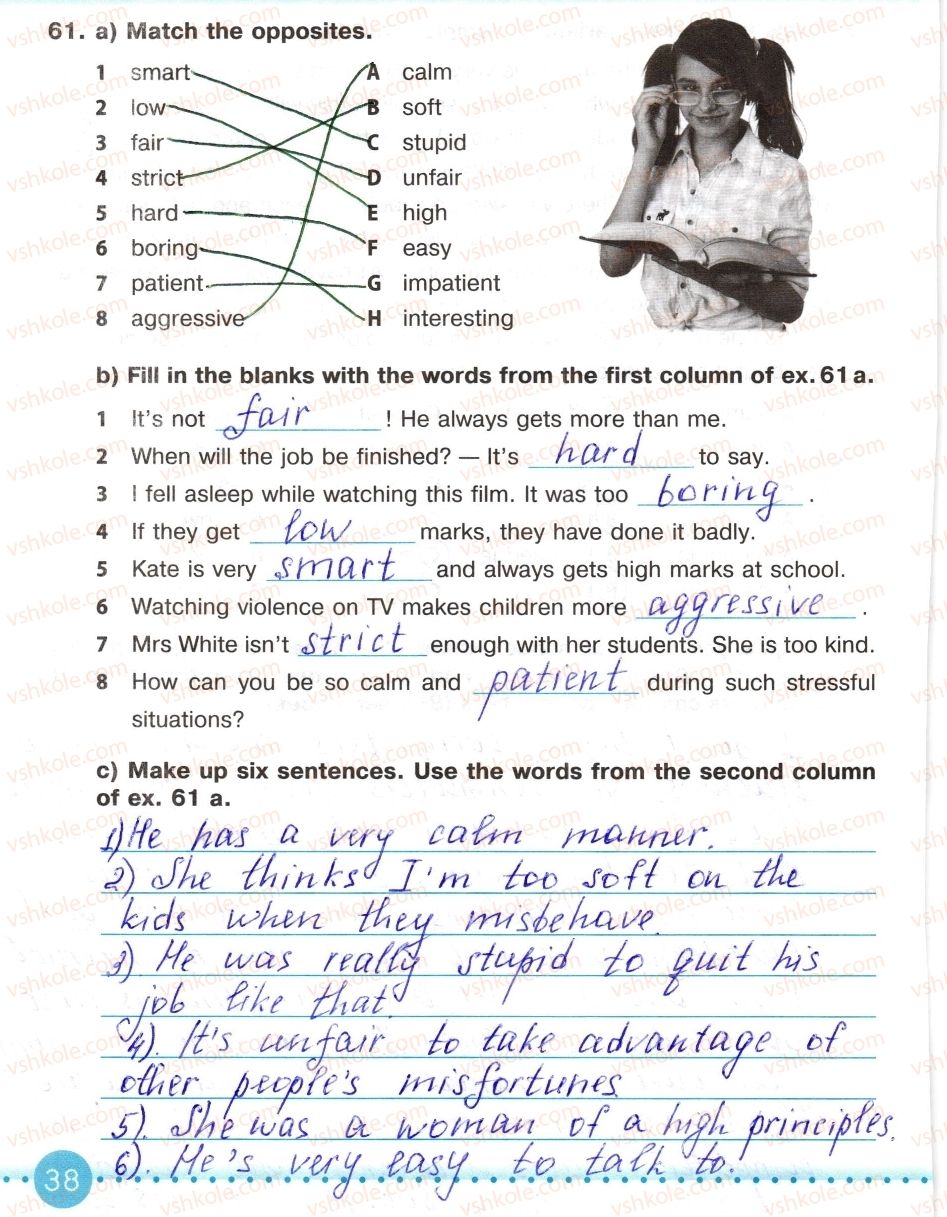 61. a) Match the opposites.
1 smart A calm
2 low B soft
3 fair C stupid
4 strict D unfair
5 hard E high
6 boring F easy
7 patient G impatient
8 aggressive H interesting
b) Fill in the blanks with the words from the first column of ex. 61 a.
1 It's not fair ! He always gets more than me.
2 When will the job be finished? — It's hard to say.
3 I fell asleep while watching this film. It was too boring .
4 If they get low marks, they have done it badly.
5 Kate is very smart and always gets high marks at school.
6 Watching violence on TV makes children more aggressive .
7 Mrs White isn't strict enough with her students. She is too kind.
8 How can you be so calm and patient during such stressful
situations?
c) Make up six sentences. Use the words from the second column
of ex. 61 a.
1) He has a very calm manner.
2) She thinks I'm too soft on the
kids when they misbehave.
3). He was really stupid to quit his
job like that.
4). It's unfair to take advantage of
other people's misfortunes.
5). She was a woman of a high principles.
6). He's very easy to talk to.
38
vshkole.com